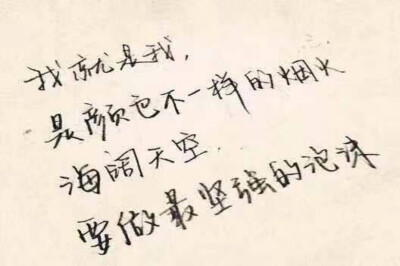 我就是我，
是颜色不一样的烟火
海阔天空.
要做最坚强的泡沫